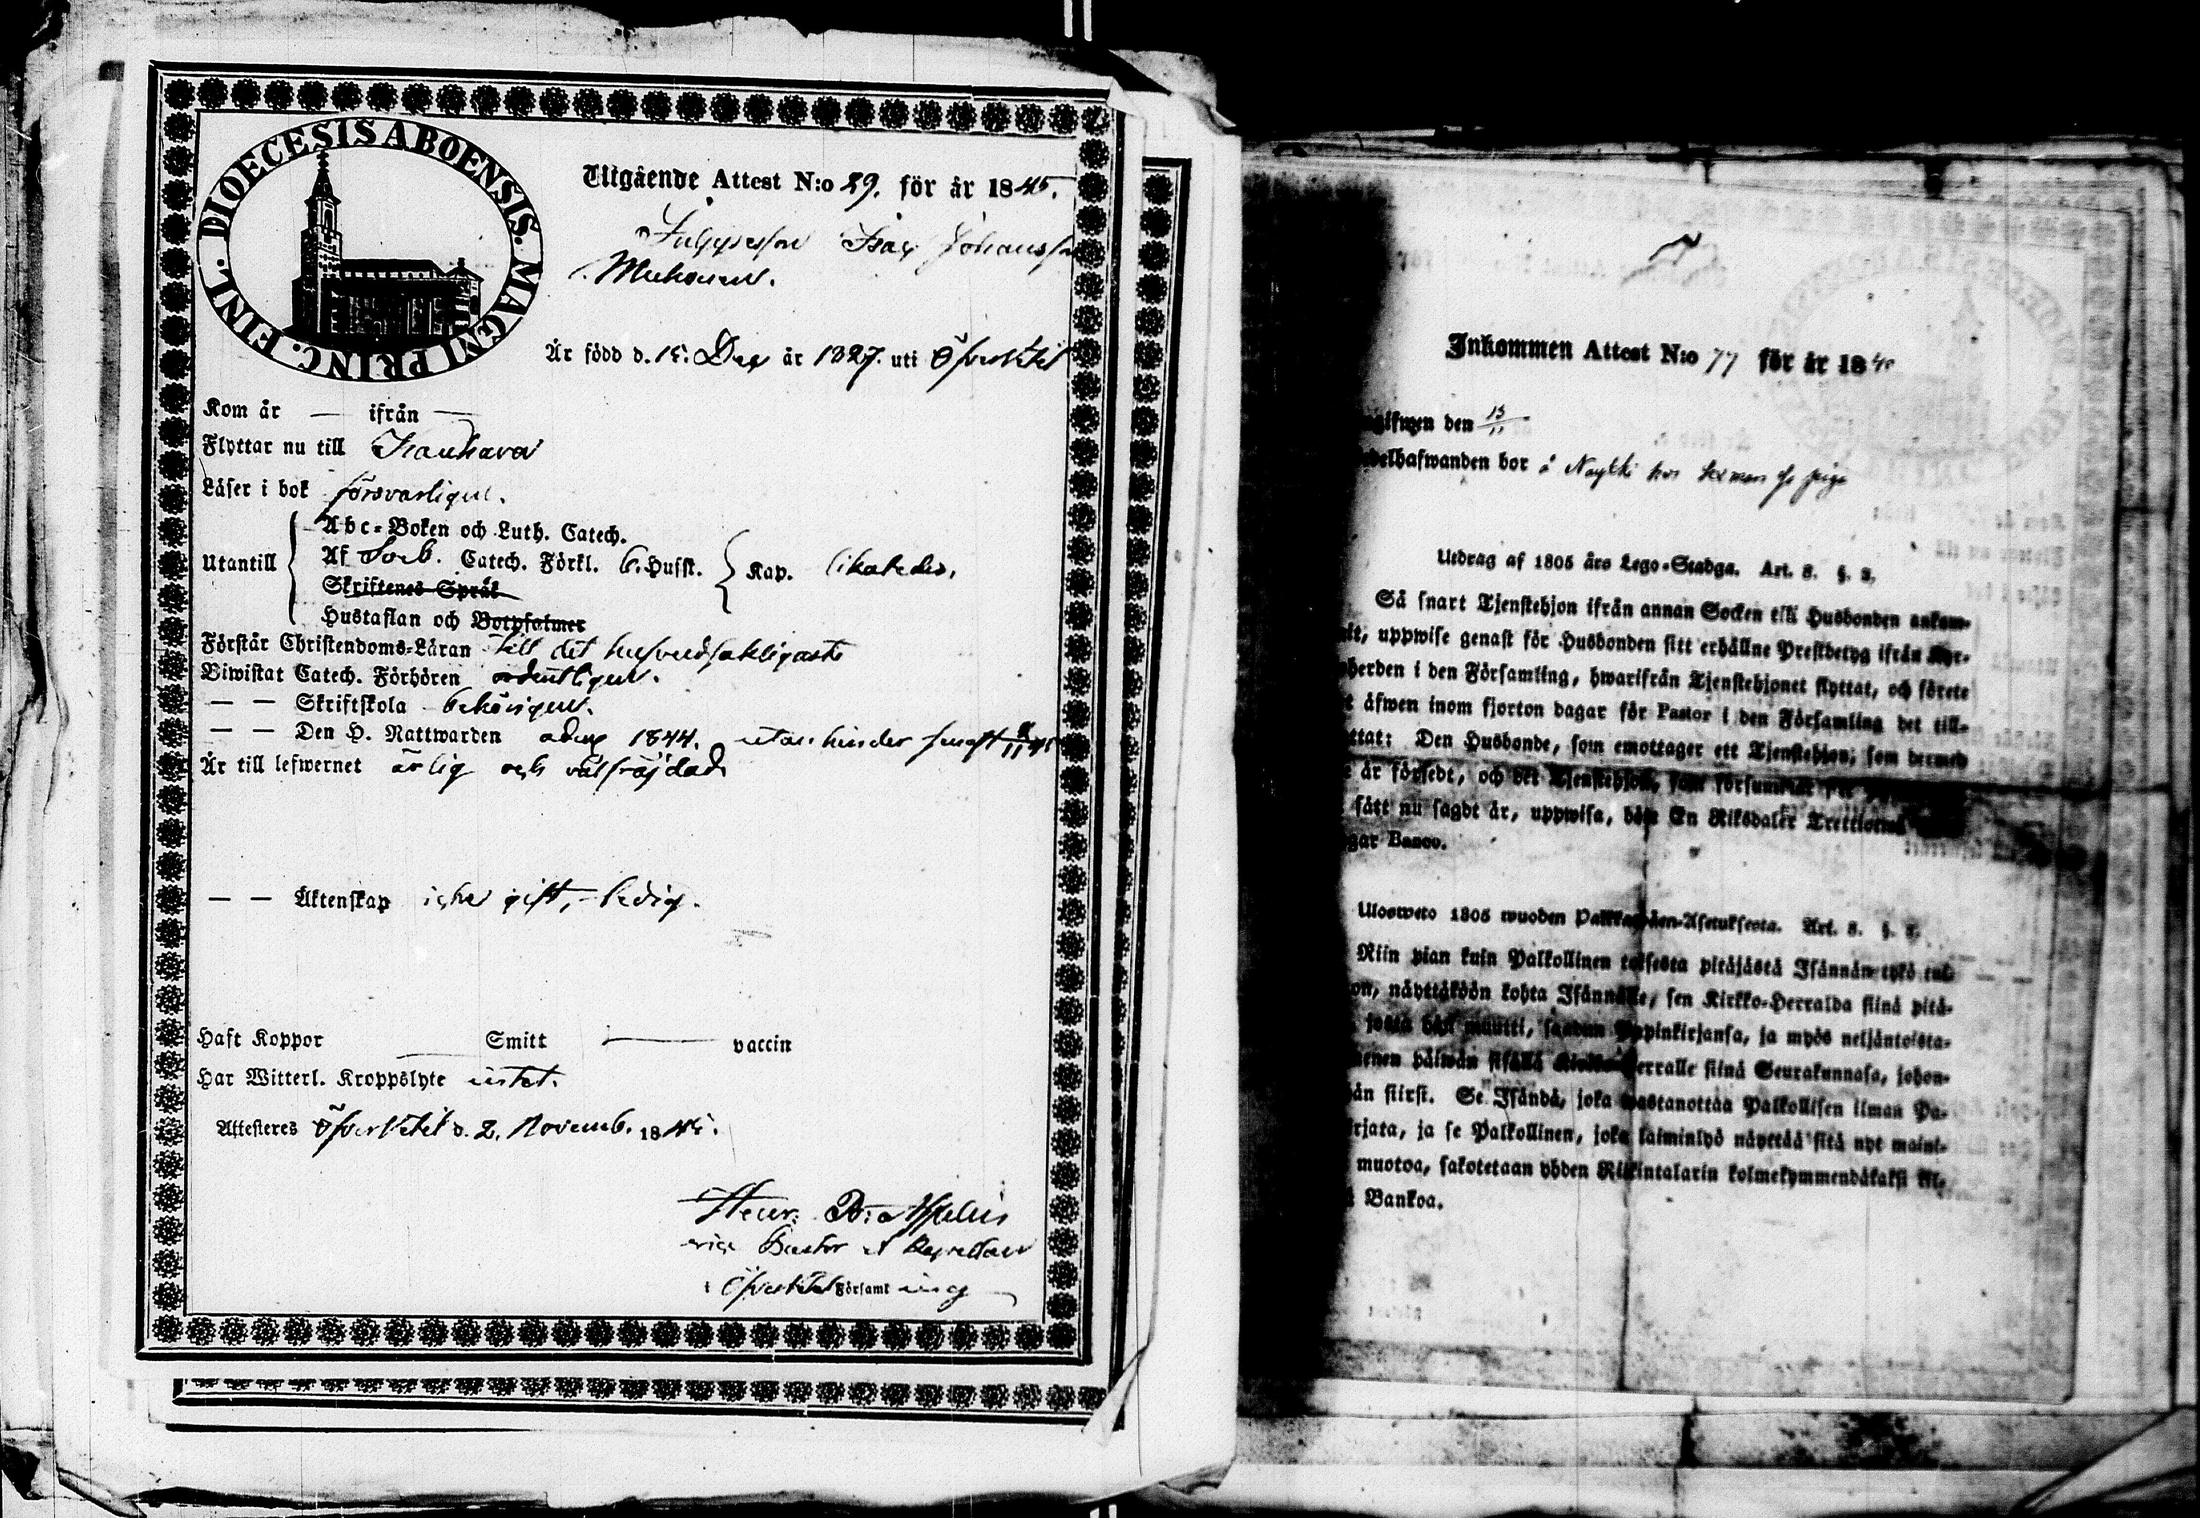 DIOECESIS ABOENSIS. MAGNI PRINC. FINL.
Utgående Attest N:o 29. för år 1845.
Isac Johansson
Är född d. 15. Dec år 1827. uti Öfvertitel
Kom år — ifrån —
Flyttar nu till Kauhava
Läser i bok försvarligen.
Abc-Boken och Luth. Catech.
Utantill Af Sveb. Catech. Förkl. 6. Husst. Kap. likaledes.
Skriftenes Språk
Hustaflan och Botpsalmer
Förstår Christendoms-Läran till det hufvudsakligaste
Biwistat Catech. Förhören ordentligen.
— — Skriftskola behörigen.
— — Den H. Nattwarden 1844. utan hinder senast
Är till lefwernet ärlig och välfräjdad
— — Äktenskap icke gift, ledig.
Haft Koppor — Smitt — vaccin
Har Witterl. Kroppslyte intet.
Attesteres d. 2. Novemb. 1845.
Henr.
vice Pastor et Capellan
i Församling
Inkommen Attest N:o 77 för år 184
den 13/11
bor å
Utdrag af 1805 års Lego-Stadga. Art. 8. §. 2.
Så snart Tjenstehjon ifrån annan Socken till Husbonden ankom-
mit, uppwise genast för Husbonden sitt erhållne Prestbetyg ifrån Kyr-
koherden i den Församling, hwarifrån Tjenstehjonet flyttat, och förete
det äfwen inom fjorton dagar för Pastor i den Församling det till-
flyttat: Den Husbonde, som emottager ett Tjenstehjon, som dermed
är försedt, och det Tjenstehjon, som försummar
sätt nu sagdt är, uppwisa, böte En Riksdaler Trettiotwå
Banco.
Ulosweto 1805 wuoden Palkkawäen-Asetuksesta. Art. 8. §. 2.
Niin pian kuin Palkollinen toisesta pitäjästä Isännän tykö tul-
lut on, näyttäköön kohta Isännälle, sen Kirkko-Herralda siinä pitä-
jässä, josta hän muutti, saadun Pappinkirjansa, ja myös neljäntoista-
kymmenen päiwän sisällä Kirkko-Herralle siinä Seurakunnasa, johon-
ka hän siirsi. Se Isändä, joka wastanottaa Palkollisen ilman Pa-
pinkirjata, ja se Palkollinen, joka laiminlyö näyttää sitä nyt maini-
tulla muotoa, sakotetaan yhden Riikintalarin kolmekymmendäkaksi kil-
lingiä Bankoa.